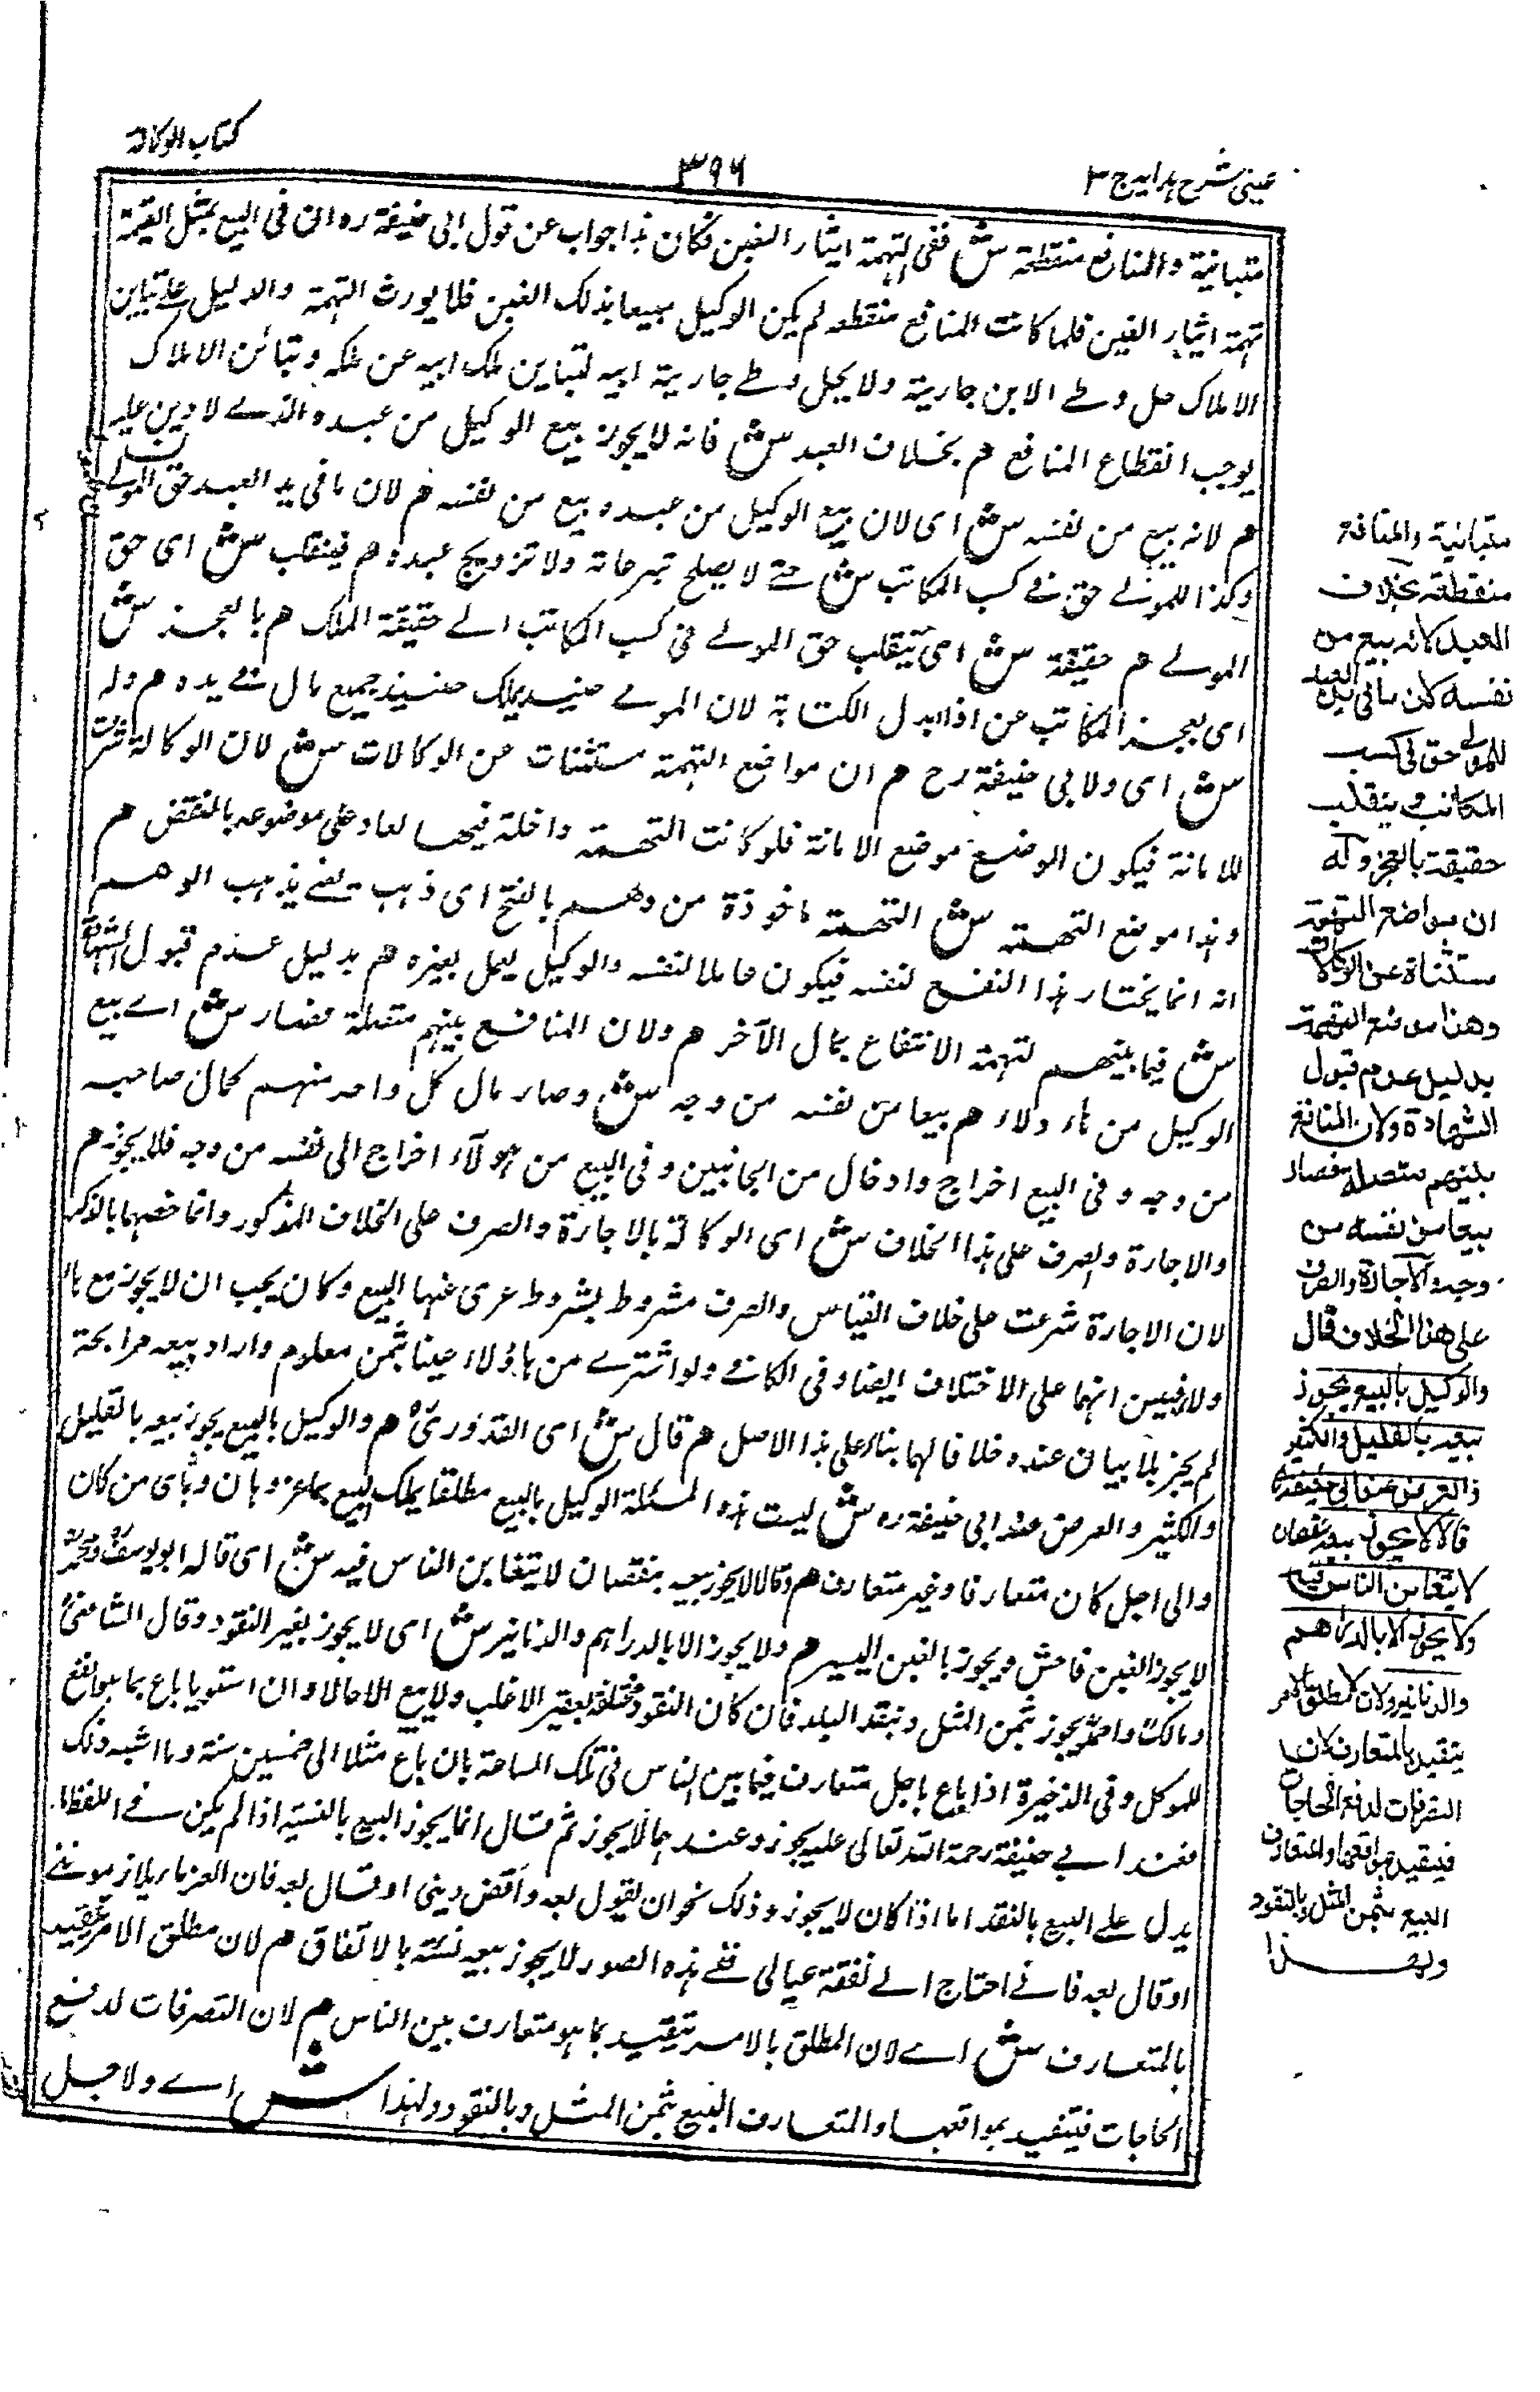 عینی شرح ہدایہ ج ۳
۳۹۶
کتاب الوکالة
متباينة والمنافع منقطعة ش ففى التهمة ايثار الغبن فكان هذا جواب عن قول ابى حنيفة ره ان فى البيع بمثل القيمة
تهمة ايثار الغبن فلما كانت المنافع منقطعه لم يكن الوكيل مبيعا بذلك الغبن فلا يورث التهمة والدليل على تباين
الاملاك حل وطے الابن جارية ولا يحل وطے جارية ابيه لتباين ملك ابيه عن ملكه وتبائن الاملاك
يوجب انقطاع المنافع هم بخلاف العبد ش فانه لا يجوز بيع الوكيل من عبده الذے لا دين عليه
هم لانه بيع من نفسه ش اى لان بيع الوكيل من عبده بيع من نفسه هم لان ما فى يد العبد حق المولے
وكذا للمولے حق فے كسب المكاتب ش حتے لا يصلح تبرعاته ولا تزويج عبده هم فينقلب ش اى حق
المولے هم حقيقة ش اى ينقلب حق المولے فى كسب المكاتب الے حقيقة الملك هم بالعجز ش
اى بعجز المكاتب عن اذا بدل الكتابة لان المولے حينئذ يملك جميع مال فے يده هم وله
ش اى ولابى حنيفة رح هم ان مواضع التهمة مستثنات عن الوكالات ش لان الوكالة شرعت
للامانة فيكون الوضع موضع الامانة فلو كانت التهمة داخلة فيها لعاد على موضوعه بالنقض هم
وهذا موضع التهمة ش التهمة ماخوذة من وهم بالفتح اى ذهب يعنے يذهب الوهم
انه انما يختار هذا النفع لنفسه فيكون عاملا لنفسه والوكيل يعمل لغيره هم بدليل عدم قبول الشهادة
ش فيما بينهم لتهمة الانتفاع بمال الآخر هم ولان المنافع بينهم متصلة فصار ش اے بيع
الوكيل من هاؤلاء هم بيعا من نفسه من وجه ش وصار مال كل واحد منهم كمال صاحبه
من وجه وفى البيع اخراج وادخال من الجانبين وفى البيع من هولآء اخراج الى نفسه من وجه فلا يجوز هم
والاجارة والصرف على هذا الخلاف ش اى الوكالة بالاجارة والصرف على الخلاف المذكور وانما خصهما بالذكر
لان الاجارة شرعت على خلاف القياس والصرف مشروط بشروط عرى عنها البيع وكان يجب ان لا يجوز مع
ولا فبين انهما على الاختلاف ايضا وفى الكافے ولو اشترے من هاؤلاء عينا بثمن معلوم واراد بيعه مرابحة
لم يجز بلا بيان عنده خلافا لهما بناء على هذا الاصل هم قال ش اى القدورىؒ هم والوكيل بالبيع يجوز بيعه بالقليل
والكثير والعرض عند ابى حنيفة ره ش ليست هذه المسئلة الوكيل بالبيع مطلقا يملك البيع بما عز وهان وباى من كان
والى اجل كان متعارفا وغير متعارف هم وقالا لا يجوز بيعه بنقصان لا يتغابن الناس فيه ش اى قاله ابو يوسفؒ ومحمدؒ
لا يجوز الغبن فاحش ويجوز بالغبن اليسير هم ولا يجوز الا بالدراهم والدنانير ش اى لا يجوز بغير النقود وقال الشافعىؒ
ومالكؒ واحمدؒ يجوز بثمن المثل وبنقد البلد فان كان النقود مختلفة يعتبر الاغلب ولا يبيع الا حالا وان استويا باع بما هو انفع
للموكل وفى الذخيرة اذا باع باجل متعارف فيما بين الناس فى تلك الساعة بان باع مثلا الى خمسين سنة وما اشبه ذلك
فعند ابے حنيفة رحمة الله تعالى عليه يجوز وعندهما لا يجوز ثم قال انما يجوز البيع بالنسيئة اذا لم يكن فے اللفظ ما
يدل علے البيع بالنقد اما اذا كان لا يجوز وذلك نحو ان يقول بعه واقض دينى او قال بعه فان الغرماء يلازموننے
او قال بعه فانے احتاج الے نفقة عيالى ففے هذه الصور لا يجوز بيعه نسئة بالاتفاق هم لان مطلق الامر يتقيد
بالمتعارف ش اے لان المطلق بالامر يتقيد بما هو متعارف بين الناس هم لان التصرفات لدفع
الحاجات فيتقيد بمواقعها والمتعارف البيع بثمن المثل وبالنقود ولهذا ش اے ولاجل
متبائنية والمنافع
منقطعة بخلاف
العبد لانه بيع من
نفسه لان ما فى يد العبد
للمولے حق فى كسب
المكاتب وينقلب
حقيقة بالعجز وله
ان مواضع التهمة
مستثناة عن الوكالات
وهذا موضع التهمة
بدليل عدم قبول
الشهادة ولان المنافع
بينهم متصلة فصار
بيعا من نفسه من
وجه والاجارة والصرف
على هذا الخلاف قال
والوكيل بالبيع يجوز
بيعه بالقليل والكثير
والعرض عند ابى حنيفة
وقالا لا يجوز بيعه بنقصان
لا يتغابن الناس فيه
ولا يجوز الا بالدراهم
والدنانير لان مطلق الامر
يتقيد بالمتعارف لان
التصرفات لدفع الحاجات
فيتقيد بمواقعها والمتعارف
البيع بثمن المثل وبالنقود
ولهذا